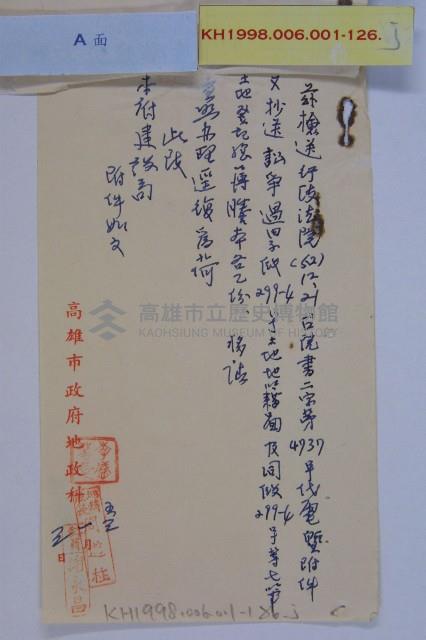 A面
KH1998.006.001-126.j
茲檢送行政法院(52)12.21台院書二字第4937號代電暨附件
又抄送訟爭過田子段299-4號土地地籍圖及同段299-4號等七筆
土地登記總簿謄本各乙份、移請
查照辦理逕復為荷
此致
本府建設局
附件如文
高雄市政府地政科
高雄市立歷史博物館
KAOHSIUNG MUSEUM OF HISTORY
KH1998.006.001-126.j